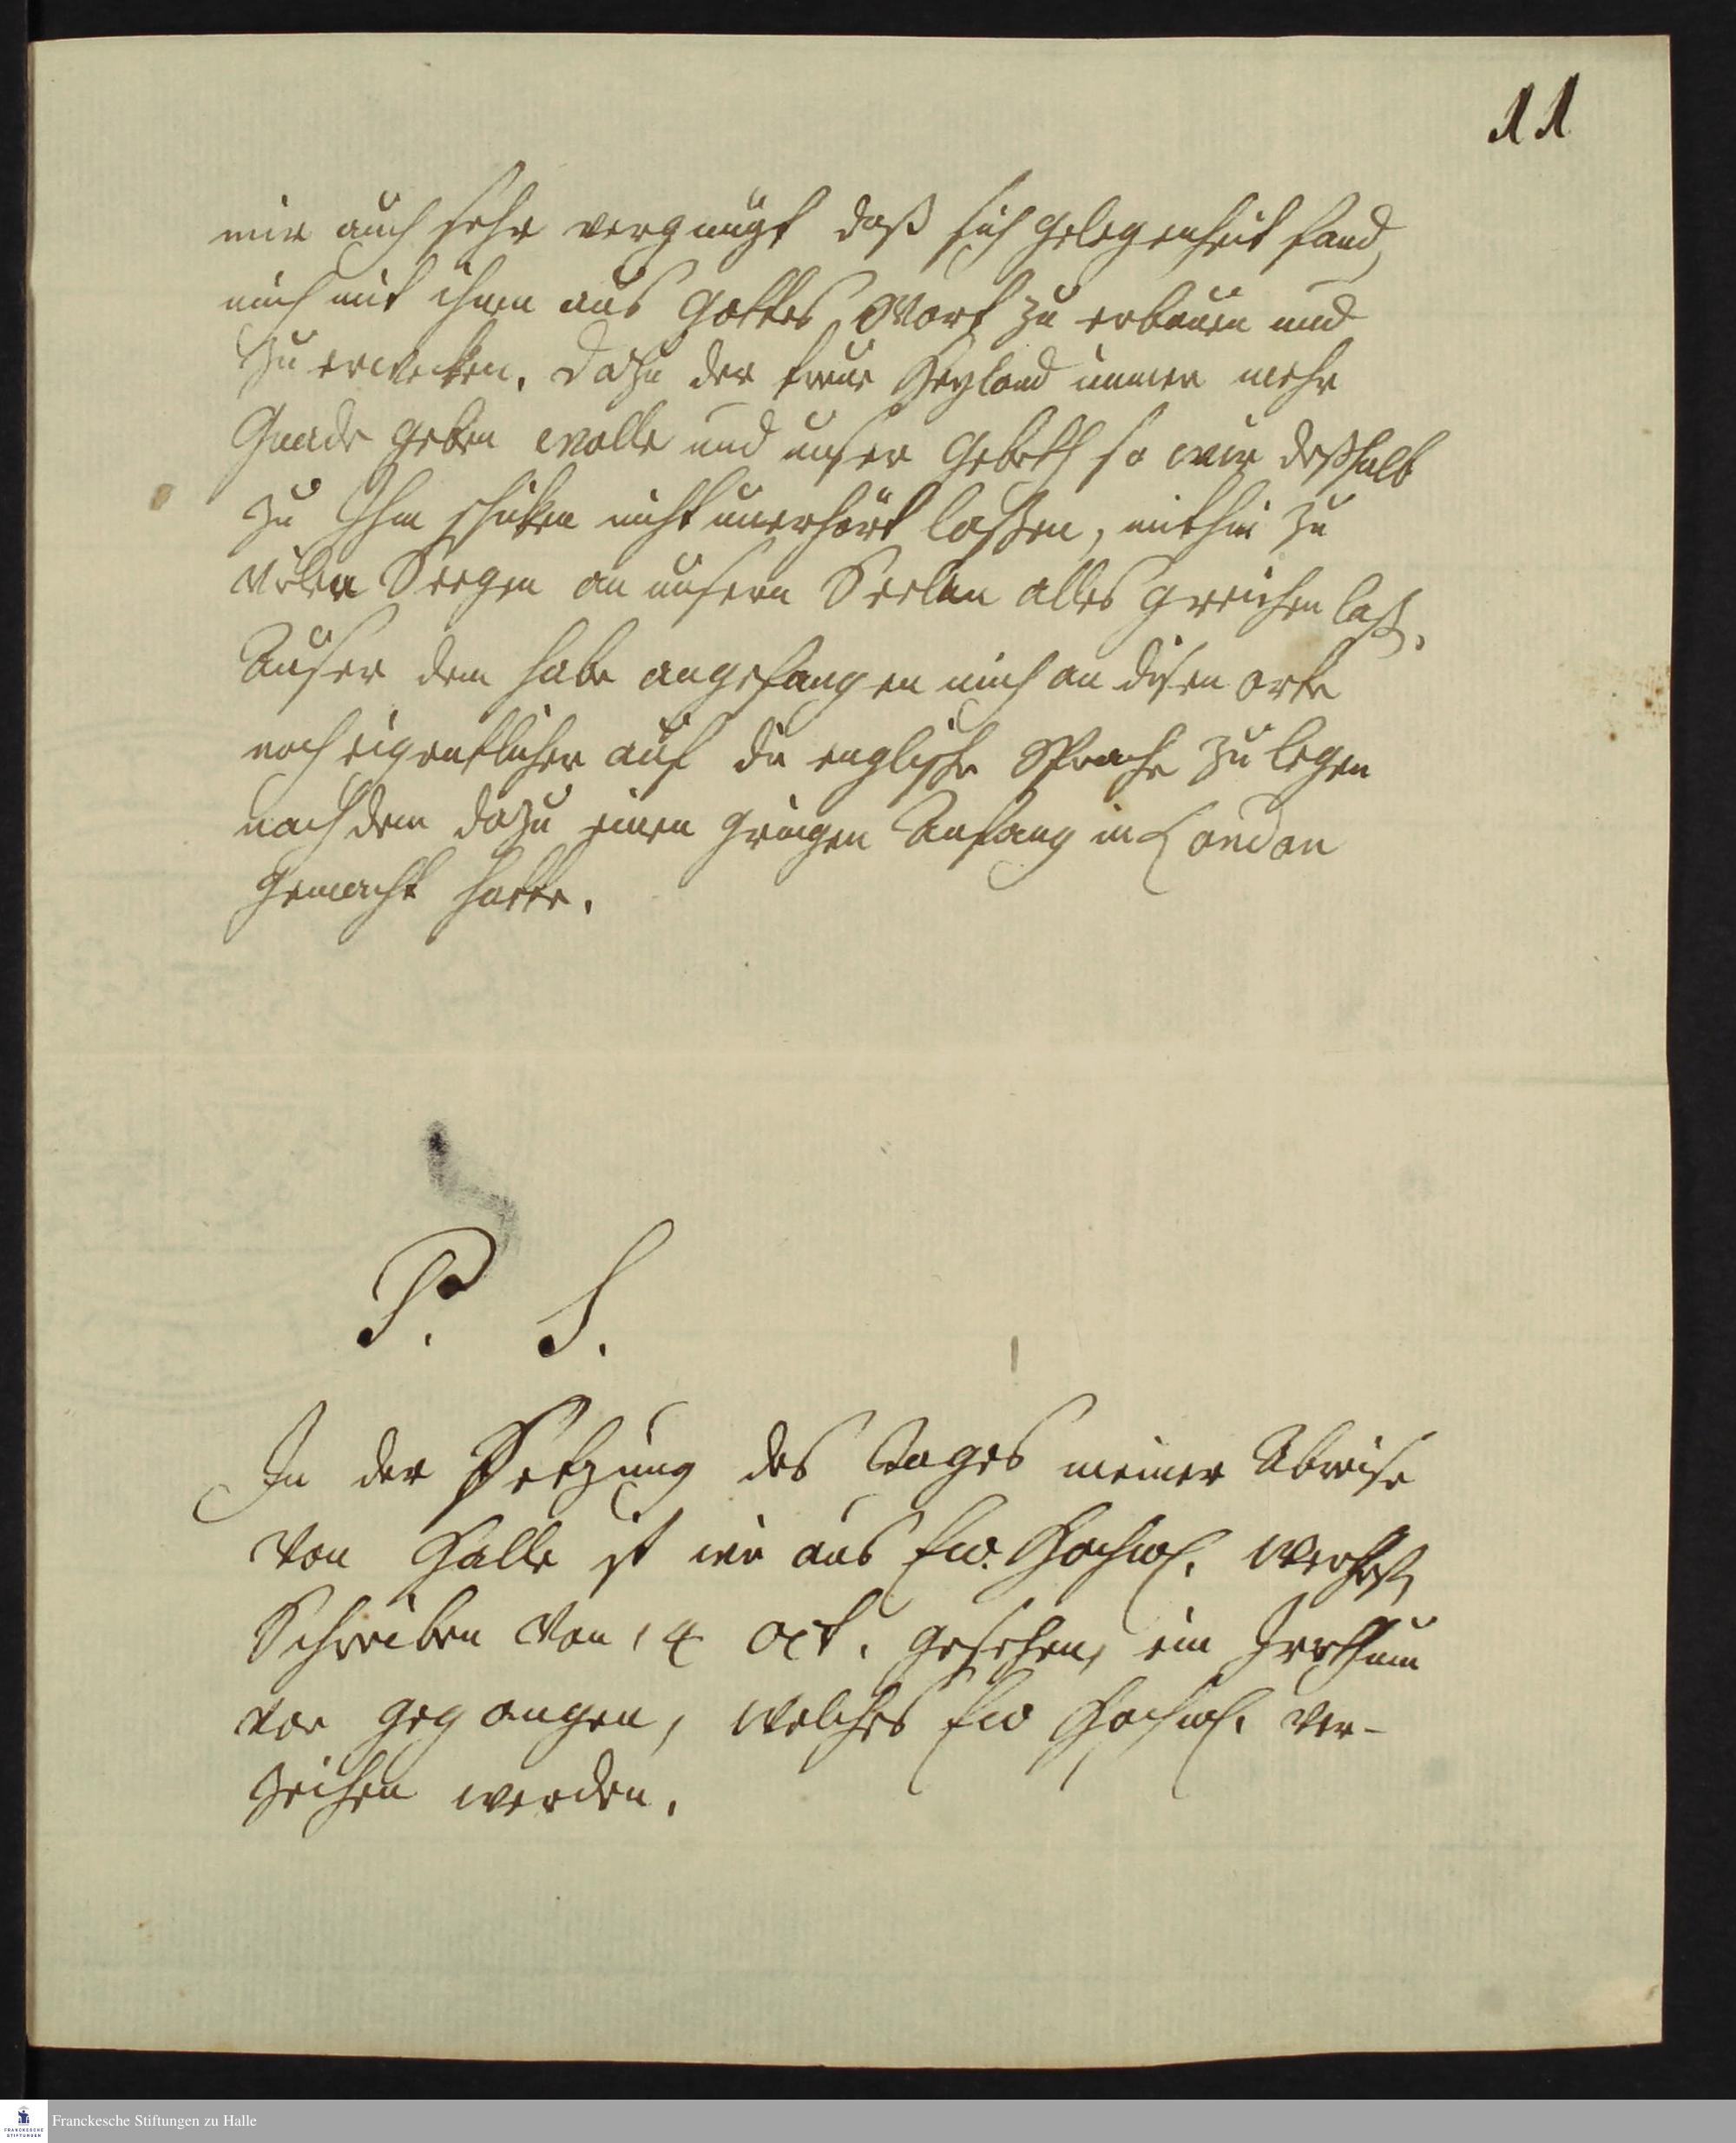 11
mir auch sehr vergnügt daß sich gelegenheit fand,
mich mit ihnen aus Gottes Wort zu erbauen und
zu erwecken. Dazu der treue Heyland immer mehr
Gnade geben wolle und unser Gebeth so wir deßhalb
zu Ihm schicken nicht unerhört laßen, mithin zu
vielen Seegen an unsern Seelen alles gereichen laß.
Auser dem habe angefangen mich an disen orte
noch eigentlicher auf die englische Sprache zu legen
nach dem dazu einen gringen Anfang in London
gemacht hatte.
P. S.
In der Setzung des Tages meiner Abreise
von Halle ist wie aus Ew. Hochw. werthest
Schreiben von 14 Oct. gesehen, ein Irrthum
vor gegangen, welches Ew Hochw. ver-
zeihen werden.
Franckesche Stiftungen zu Halle
FRANCKESCHE
STIFTUNGEN